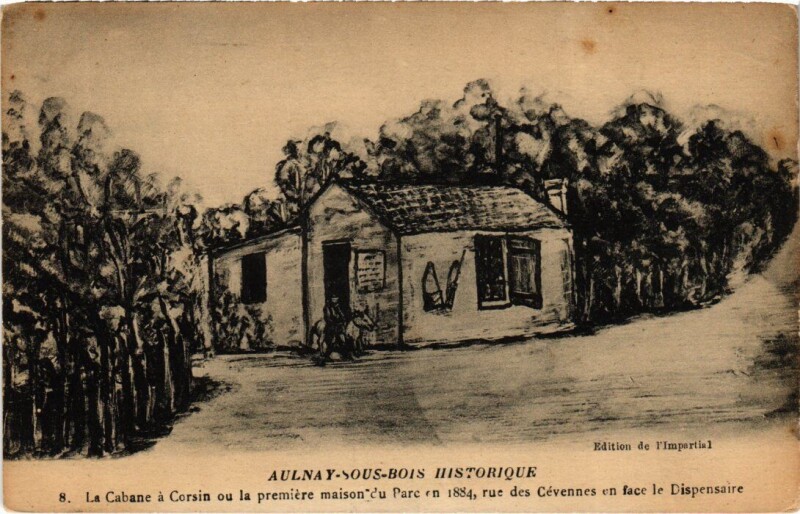 Edition de l'Impartial
AULNAY-SOUS-BOIS HISTORIQUE
8. La Cabane à Corsin ou la première maison du Parc en 1884, rue des Cévennes en face le Dispensaire